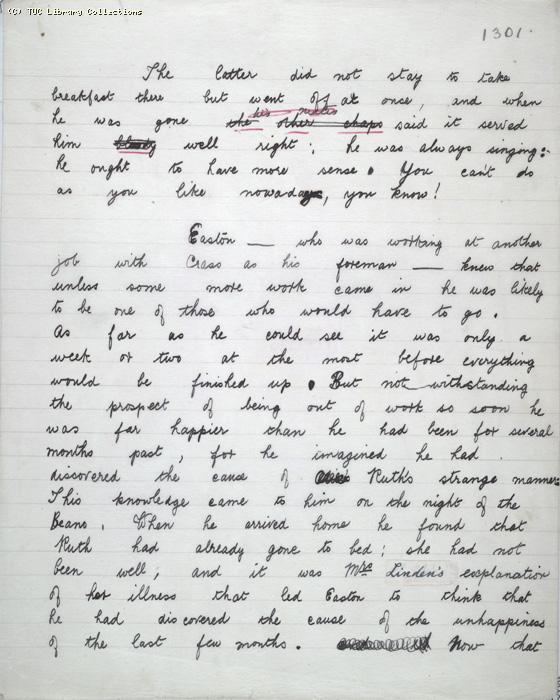 (C) TUC Library Collections
1301.
The latter did not stay to take
breakfast there but went off at once, and when
his mates
he was gone the other chaps said it served
him bloody well right: he was always singing:
he ought to have more sense. You can't do
as you like nowadays, you know!
Easton — who was working at another
job with Crass as his foreman — knew that
unless some more work came in he was likely
to be one of those who would have to go.
As far as he could see it was only a
week or two at the most before everything
would be finished up. But notwithstanding
the prospect of being out of work so soon he
was far happier than he had been for several
months past, for he imagined he had
discovered the cause of Ruth's strange manner.
This knowledge came to him on the night of the
Beano. When he arrived home he found that
Ruth had already gone to bed; she had not
been well, and it was Mrs Linden's explanation
of her illness that led Easton to think that
he had discovered the cause of the unhappiness
of the last few months. Now that